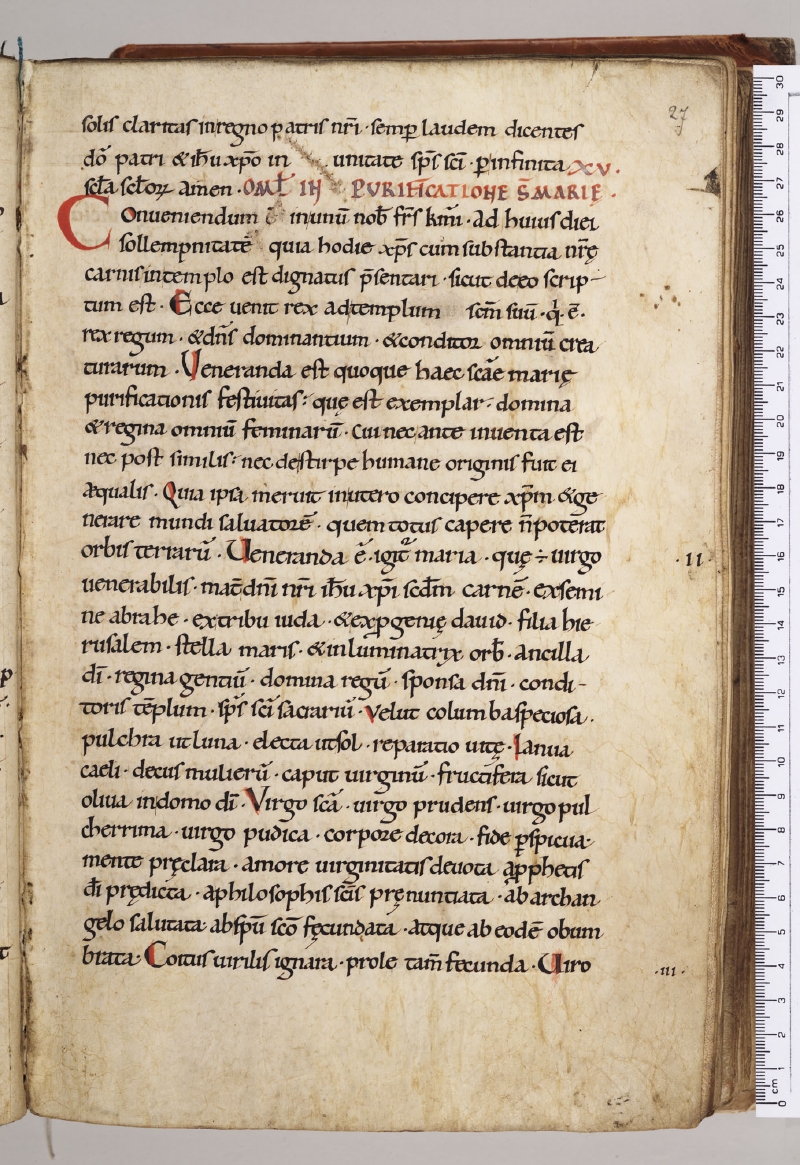 27
solis claritas in regno patris nr̄i · semp̄ laudem dicentes
dō patri & ih̄u xp̄o in unitate sp̄s sc̄i · p̄ infinita XV.
sc̄la sc̄lorꝝ amen · OML̄ IN PURIFICATIONE S̄ MARIĘ ·
Conueniendum ē in unū nob̄ fr̄s km̄i · Ad huius diei
sollempnitatē quia hodie xp̄s cum substantia nr̄ę
carnis in templo est dignatus p̄sentari · sicut de eo scrip-
tum est · Ecce uenit rex ad templum sc̄m suū · q̇ · ē ·
rex regum · & dn̄s dominantium · & conditor omniū crea
turarum · Ueneranda est quoque haec sc̄ae marię
purificationis festiuitas : quę est exemplar : domina
& regina omniū feminarū · cui nec ante inuenta est
nec post similis : nec de stirpe humane originis fuit ei
æqualis · Quia ipsa meruit in utero concipere xp̄m & ge
nerare mundi saluatorē · quem totus capere n̄ poterat
orbis terrarū · Ueneranda ē · igit̄ maria · quę ÷ uirgo · II ·
uenerabilis · mat̄ dn̄i nr̄i ih̄u xp̄i scd̄m carnē · ex semi
ne abrahe · ex tribu iuda · & ex p̱genię dauid · filia hie
rusalem · stella maris · & inluminatrix orb̄ · ancilla
dī · regina gentiū · domina regū · sponsa dn̄i · condi-
toris tēplum · sp̄s sc̄i sacrariū · velut columba speciosa ·
pulchra ut luna · electa ut sol · reparatio uitę · Ianua
caeli · decus mulierū · caput uirginū · fructifera sicut
oliua in domo dī · Virgo sc̄a · uirgo prudens · uirgo pul
cherrima · uirgo pudica · corpore decora · fide p̱spicua ·
mente pręclara · amore uirginitatis deuota a p̱phetis
dī prędicta · a philosophis sc̄is pręnuntiata · ab archan
gelo salutata · ab sp̄u sc̄o fęcundata · atque ab eodē obum
brata · Coitus uirilis ignara · prole tam̄ fecunda · Uiro · III ·